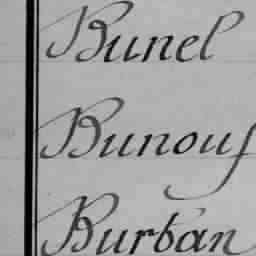 Bunel
Bunouf
Burban